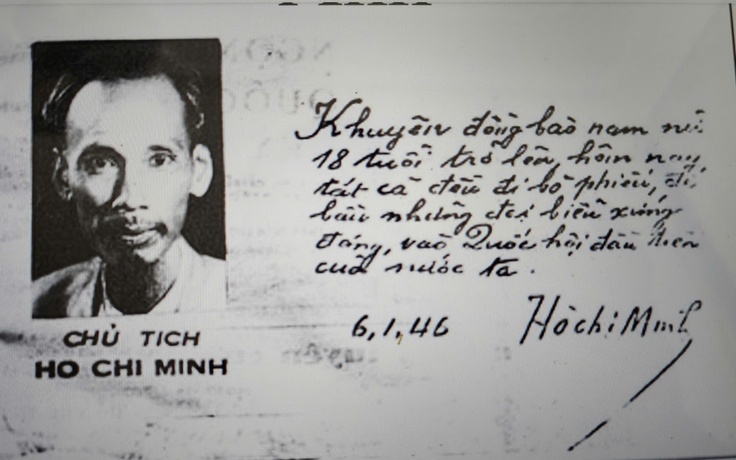 CHỦ TICH
HO CHI MINH
Khuyên đồng bào nam nữ
18 tuổi trở lên, hôm nay,
tất cả đều đi bỏ phiếu, để
bầu những đại biểu xứng
đáng, vào Quốc hội đầu tiên
của nước ta.
6,1,46
Hồ chí Minh